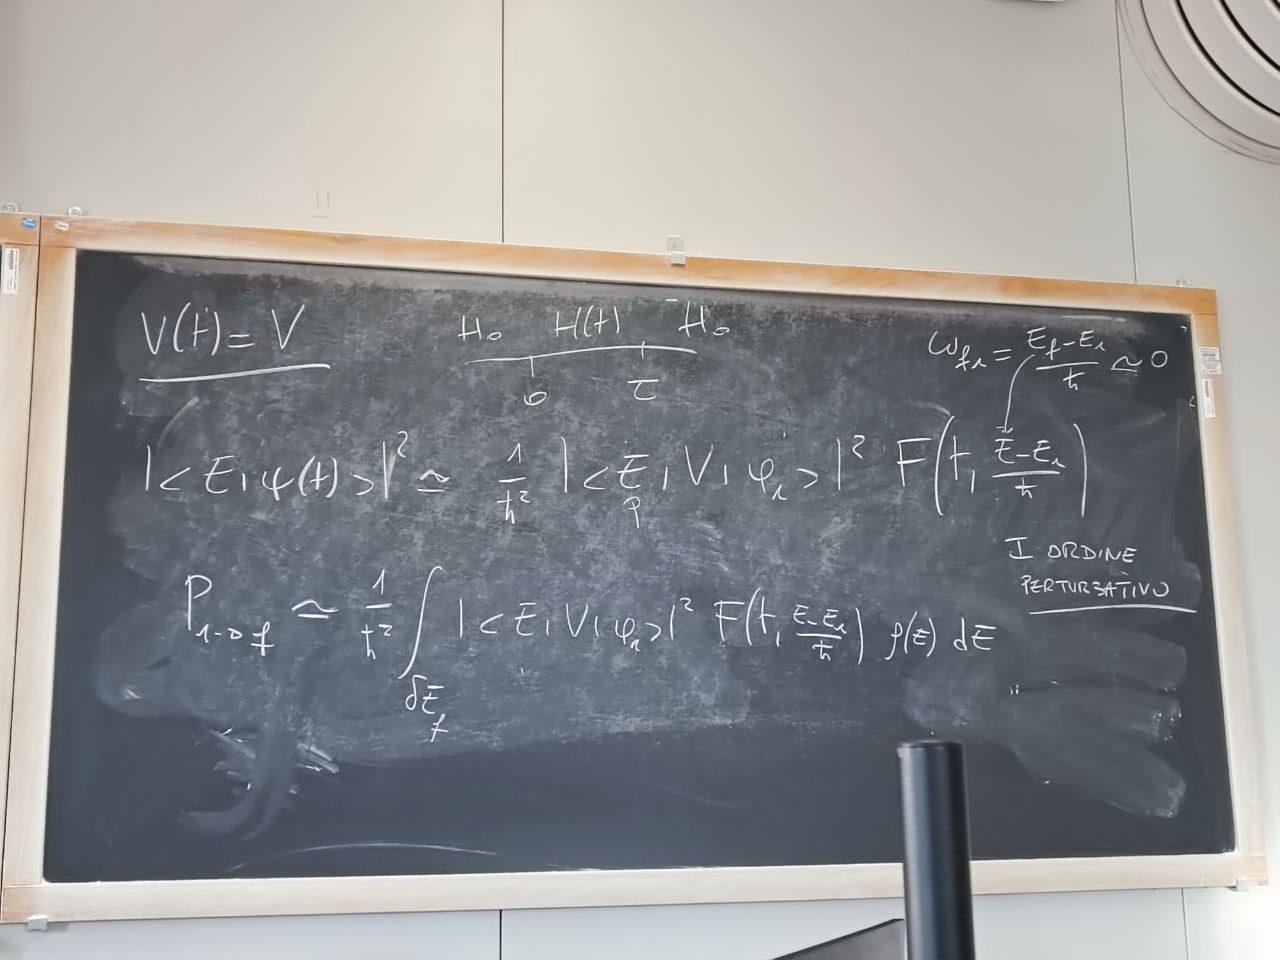 V(t) = V H₀ H(t) H₀ ω_{fi} = (E_f − E_i)/ħ ≃ 0
0 τ
|<E|ψ(t)>|² ≃ 1/ħ² |<E|V|φ_i>|² F(t, (E−E_i)/ħ)
I ORDINE
PERTURBATIVO
P_{i→f} ≃ 1/ħ² ∫_{δE_f} |<E|V|φ_i>|² F(t, (E−E_i)/ħ) ρ(E) dE